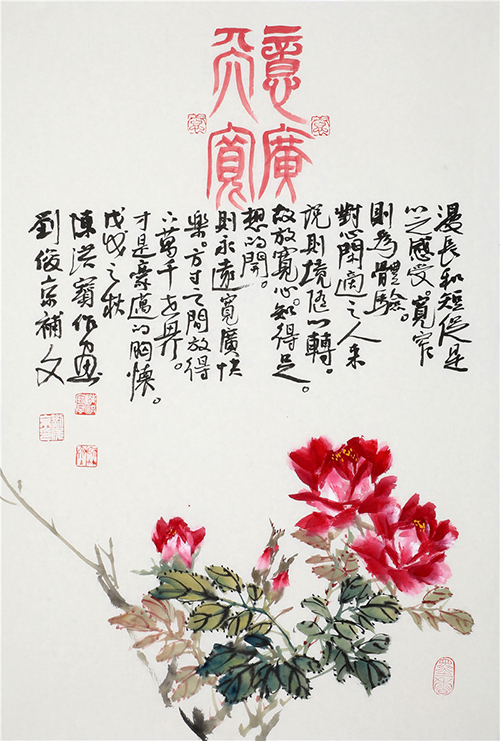 意廣
天寬
漫長和短促是
心之感受寬窄
則為體驗。
對心閑適之人來
說則境隨心轉。
故放寬心。知得足。
想的開。
則永遠寬廣快
樂。方寸之間放得
下萬千世界。
才是豪邁的胸懷。
戊戌之秋
陳洪寶作畫
劉俊京補文